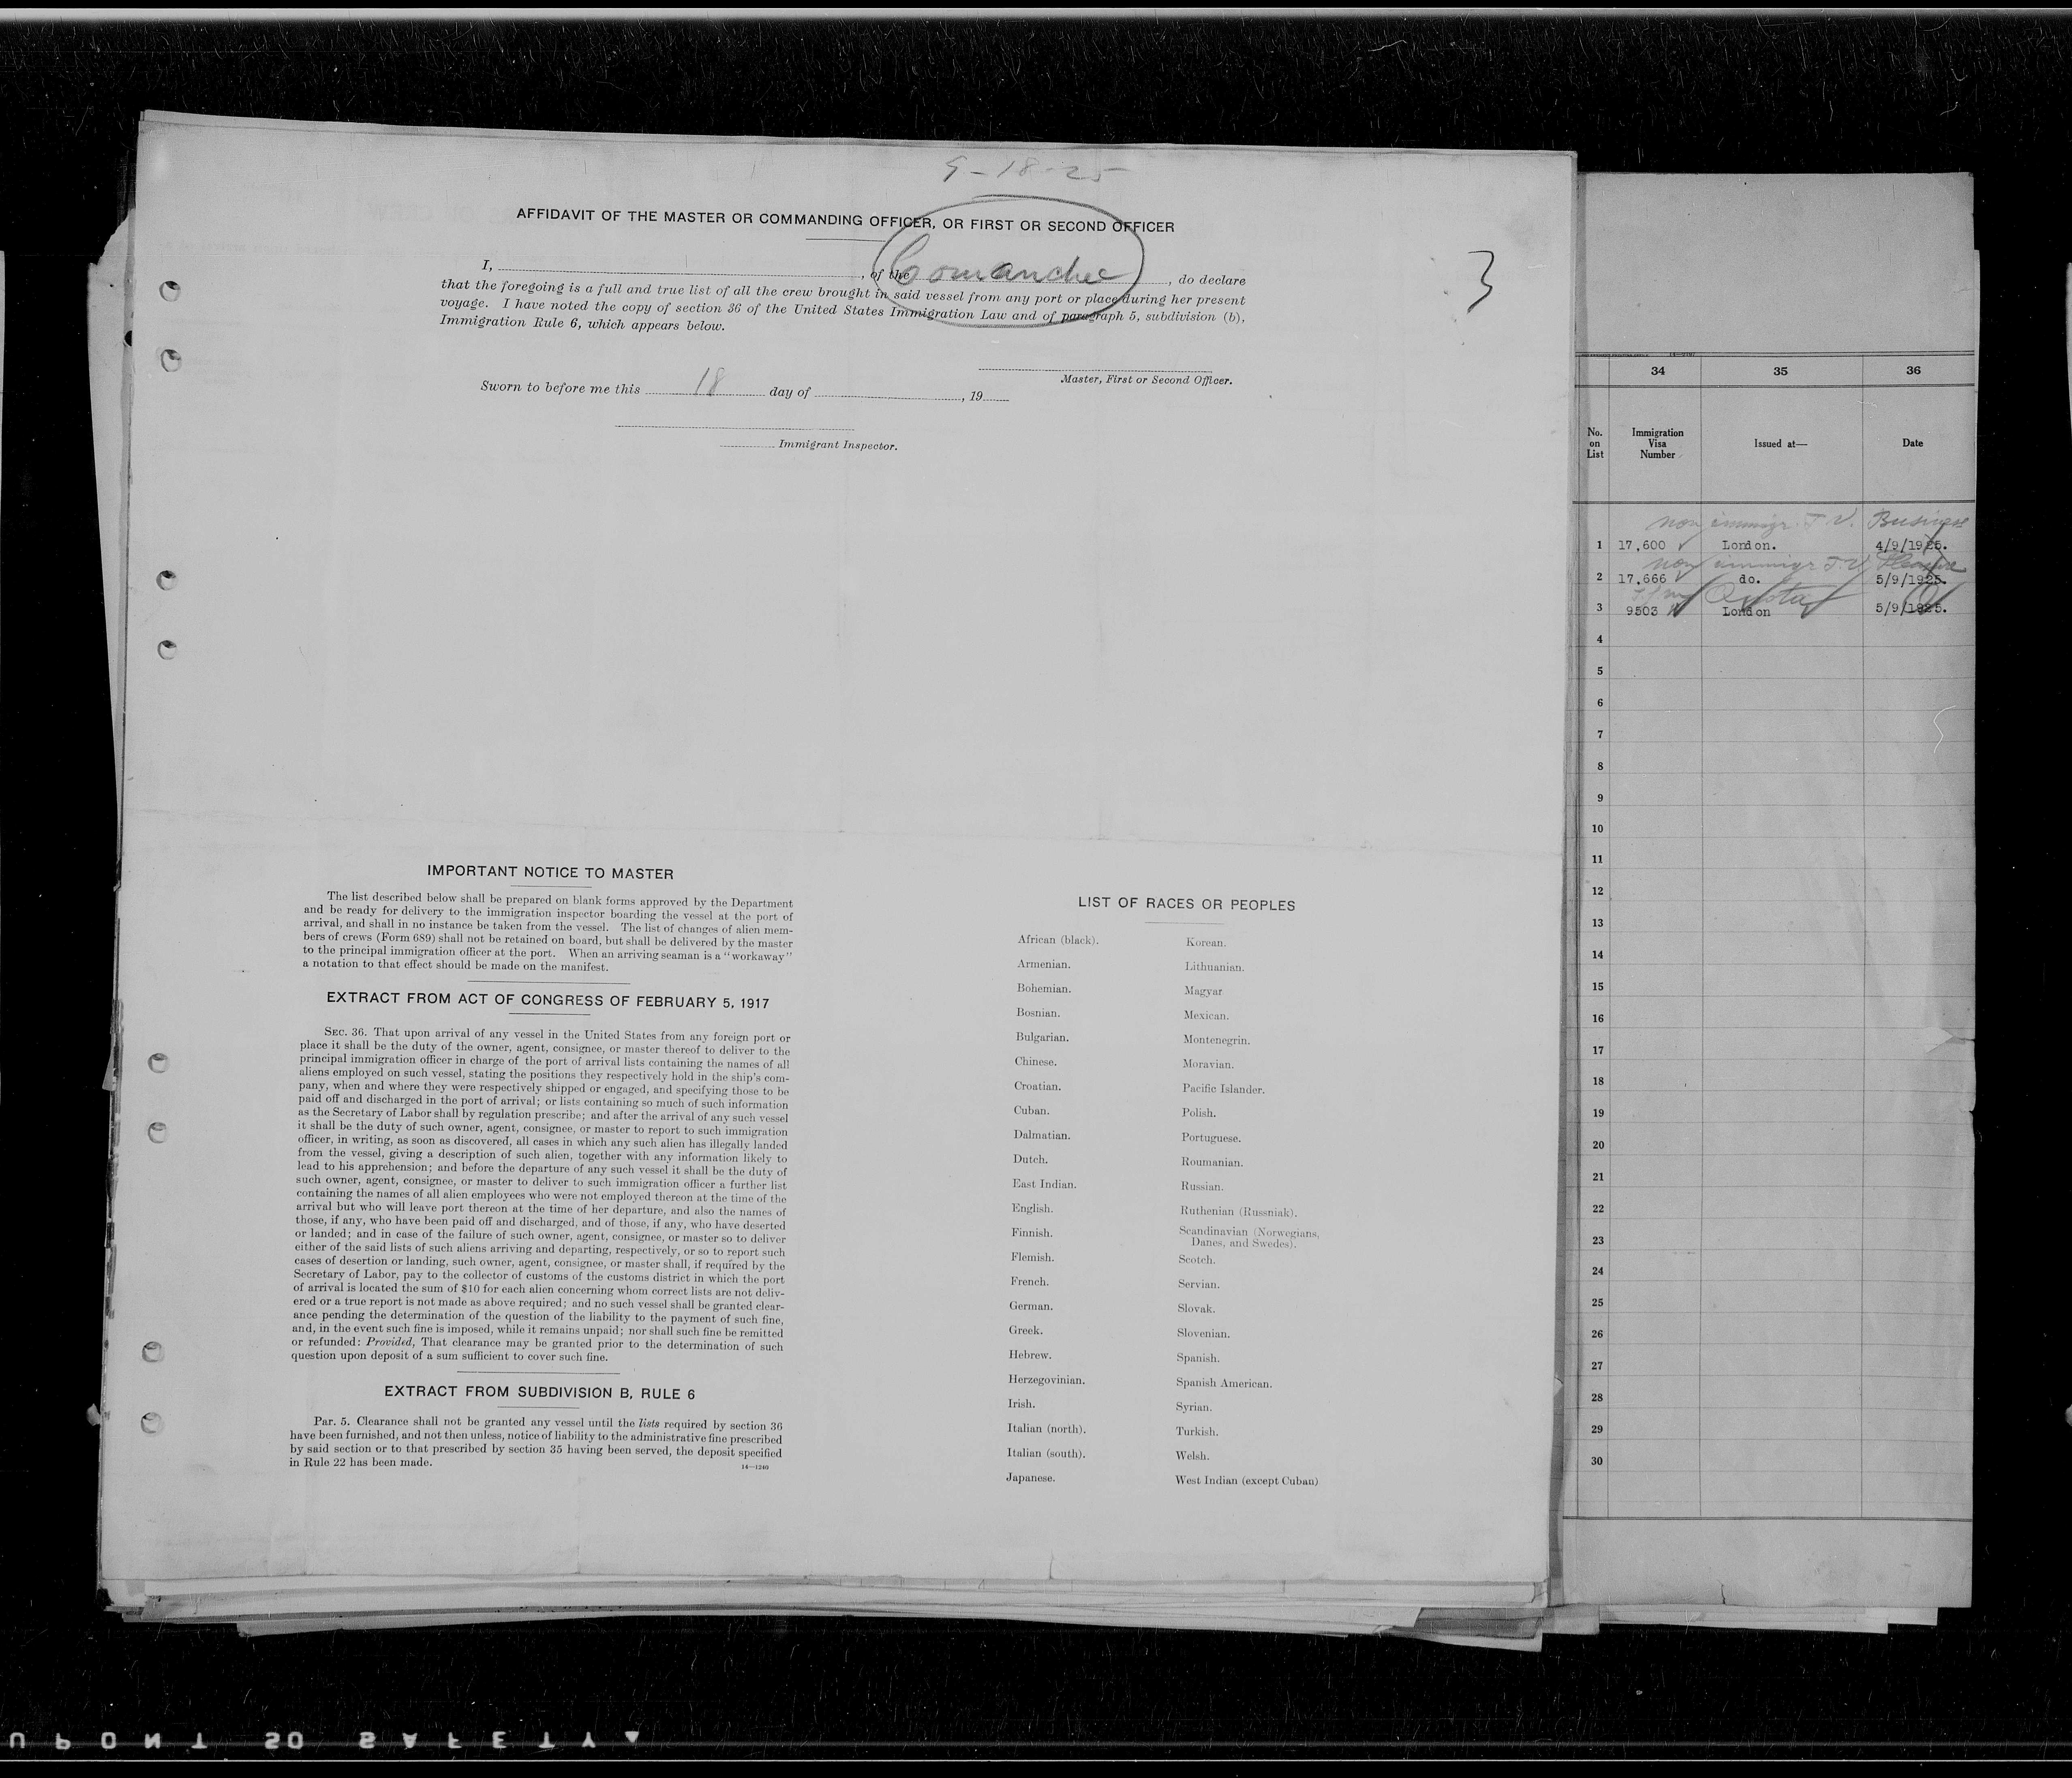 9-18-25
AFFIDAVIT OF THE MASTER OR COMMANDING OFFICER, OR FIRST OR SECOND OFFICER
I, , of the Comanche , do declare
that the foregoing is a full and true list of all the crew brought in said vessel from any port or place during her present
voyage. I have noted the copy of section 36 of the United States Immigration Law and of paragraph 5, subdivision (b),
Immigration Rule 6, which appears below.
3
Master, First or Second Officer.
Sworn to before me this 18 day of , 19
Immigrant Inspector.
IMPORTANT NOTICE TO MASTER
The list described below shall be prepared on blank forms approved by the Department
and be ready for delivery to the immigration inspector boarding the vessel at the port of
arrival, and shall in no instance be taken from the vessel. The list of changes of alien mem-
bers of crews (Form 689) shall not be retained on board, but shall be delivered by the master
to the principal immigration officer at the port. When an arriving seaman is a "workaway"
a notation to that effect should be made on the manifest.
EXTRACT FROM ACT OF CONGRESS OF FEBRUARY 5, 1917
SEC. 36. That upon arrival of any vessel in the United States from any foreign port or
place it shall be the duty of the owner, agent, consignee, or master thereof to deliver to the
principal immigration officer in charge of the port of arrival lists containing the names of all
aliens employed on such vessel, stating the positions they respectively hold in the ship's com-
pany, when and where they were respectively shipped or engaged, and specifying those to be
paid off and discharged in the port of arrival; or lists containing so much of such information
as the Secretary of Labor shall by regulation prescribe; and after the arrival of any such vessel
it shall be the duty of such owner, agent, consignee, or master to report to such immigration
officer, in writing, as soon as discovered, all cases in which any such alien has illegally landed
from the vessel, giving a description of such alien, together with any information likely to
lead to his apprehension; and before the departure of any such vessel it shall be the duty of
such owner, agent, consignee, or master to deliver to such immigration officer a further list
containing the names of all alien employees who were not employed thereon at the time of the
arrival but who will leave port thereon at the time of her departure, and also the names of
those, if any, who have been paid off and discharged, and of those, if any, who have deserted
or landed; and in case of the failure of such owner, agent, consignee, or master so to deliver
either of the said lists of such aliens arriving and departing, respectively, or so to report such
cases of desertion or landing, such owner, agent, consignee, or master shall, if required by the
Secretary of Labor, pay to the collector of customs of the customs district in which the port
of arrival is located the sum of $10 for each alien concerning whom correct lists are not deliv-
ered or a true report is not made as above required; and no such vessel shall be granted clear-
ance pending the determination of the question of the liability to the payment of such fine,
and, in the event such fine is imposed, while it remains unpaid; nor shall such fine be remitted
or refunded: Provided, That clearance may be granted prior to the determination of such
question upon deposit of a sum sufficient to cover such fine.
EXTRACT FROM SUBDIVISION B, RULE 6
Par. 5. Clearance shall not be granted any vessel until the lists required by section 36
have been furnished, and not then unless, notice of liability to the administrative fine prescribed
by said section or to that prescribed by section 35 having been served, the deposit specified
in Rule 22 has been made.
14—1240
LIST OF RACES OR PEOPLES
African (black).
Armenian.
Bohemian.
Bosnian.
Bulgarian.
Chinese.
Croatian.
Cuban.
Dalmatian.
Dutch.
East Indian.
English.
Finnish.
Flemish.
French.
German.
Greek.
Hebrew.
Herzegovinian.
Irish.
Italian (north).
Italian (south).
Japanese.
Korean.
Lithuanian.
Magyar
Mexican.
Montenegrin.
Moravian.
Pacific Islander.
Polish.
Portuguese.
Roumanian.
Russian.
Ruthenian (Russniak).
Scandinavian (Norwegians,
Danes, and Swedes).
Scotch.
Servian.
Slovak.
Slovenian.
Spanish.
Spanish American.
Syrian.
Turkish.
Welsh.
West Indian (except Cuban)
34 35 36
No. on List Immigration Visa Number Issued at— Date
non immigr T.V. Business
1 17,600 London. 4/9/1925.
non immigr T.V. Pleasure
2 17,666 do. 5/9/1925.
Quota
3 9503 London 5/9/1925.
4
5
6
7
8
9
10
11
12
13
14
15
16
17
18
19
20
21
22
23
24
25
26
27
28
29
30
UPONT SO SAFETY